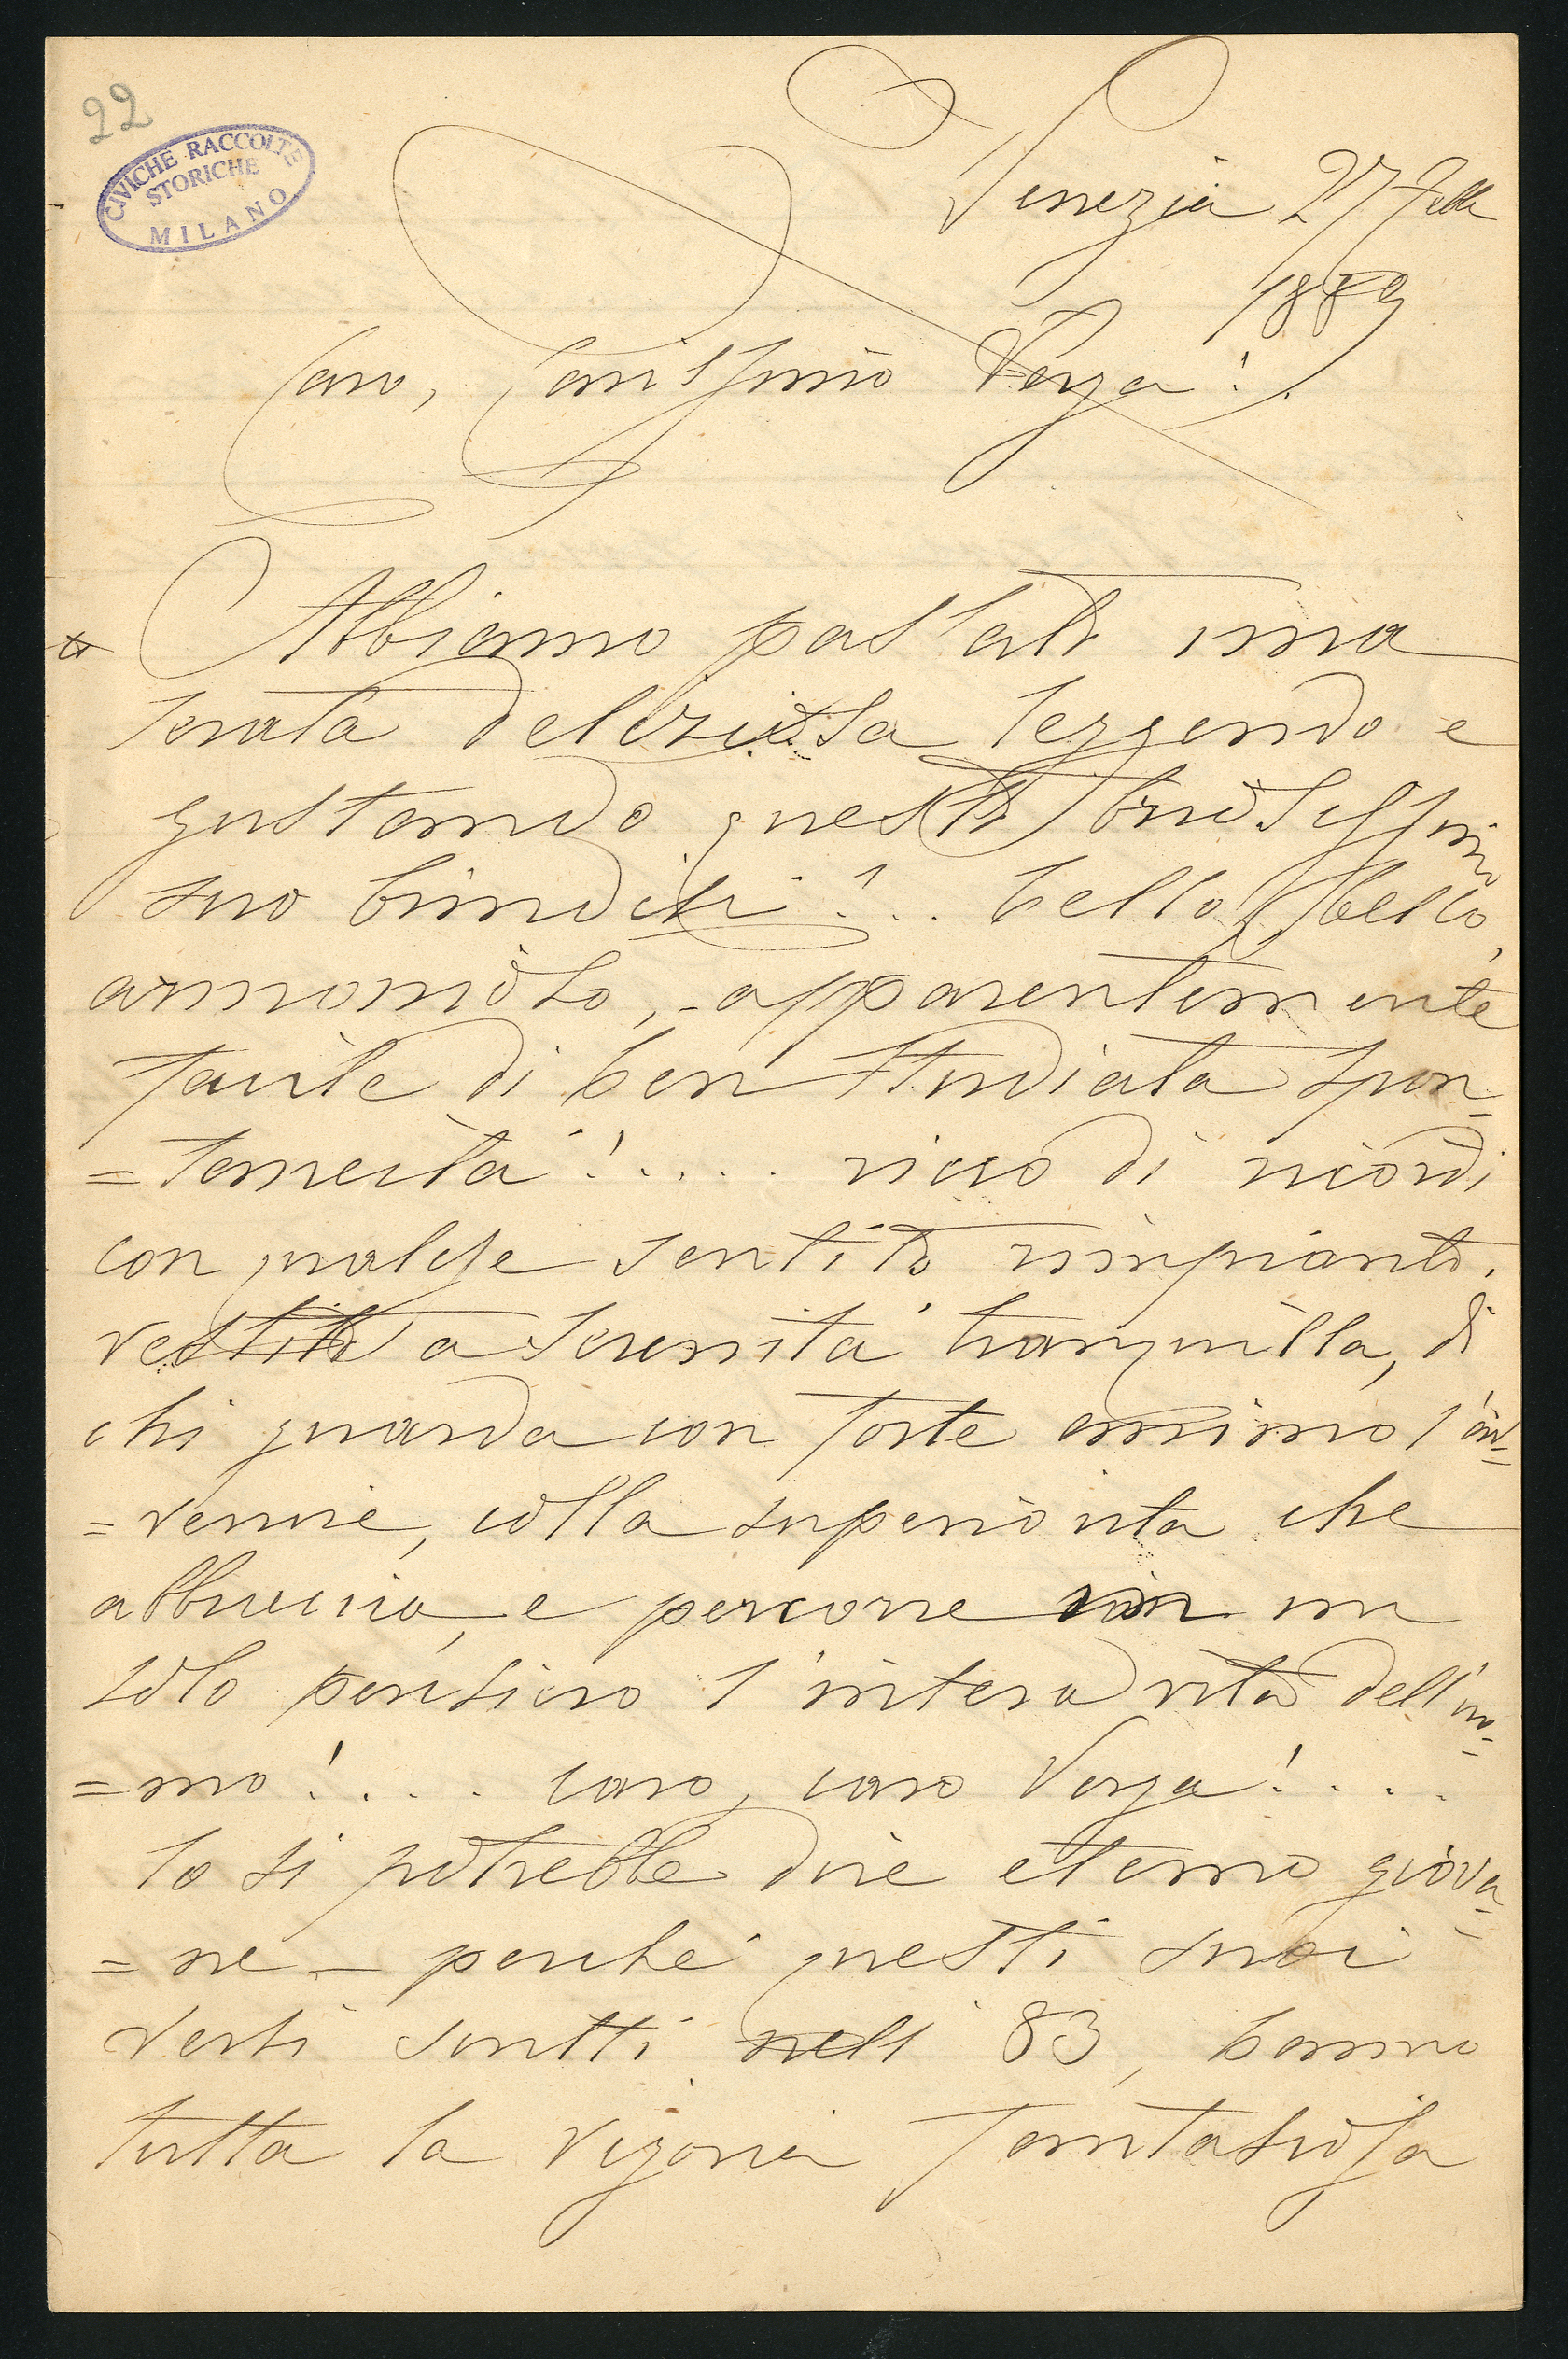 22
CIVICHE RACCOLTE
STORICHE
MILANO
Venezia 27 Febb
1889
Caro, Carissimo Verga!
Abbiamo passato una
serata deliziosa leggendo e
gustando questo briosissimo
suo brindisi!.. bello, bello,
armonioso, apparentemente
facile di ben studiata spon-
=taneità!.... ricco di ricordi
con qualche sentito rimpianto,
vestito a serenità tranquilla, di
chi guarda con forte animo l'av-
=venire, colla superiorità che
abbraccia, e percorre in un
solo pensiero l'intera vita dell'uo-
=mo!... caro, caro Verga!....
lo si potrebbe dire eterno giova-
=ne - perché questi suoi
versi scritti nell' 83, hanno
tutta la vigoria fantasiosa